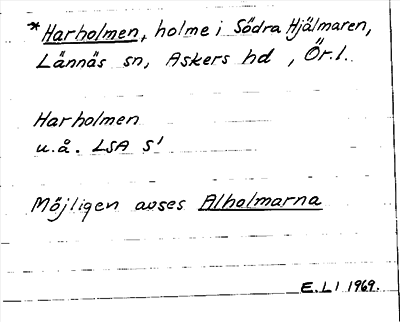 *Harholmen, holme i Södra Hjälmaren,
Lännäs sn, Askers hd, Ör.l.
Harholmen
u.å. LSA S'
Möjligen avses Alholmarna
E.L! 1969.